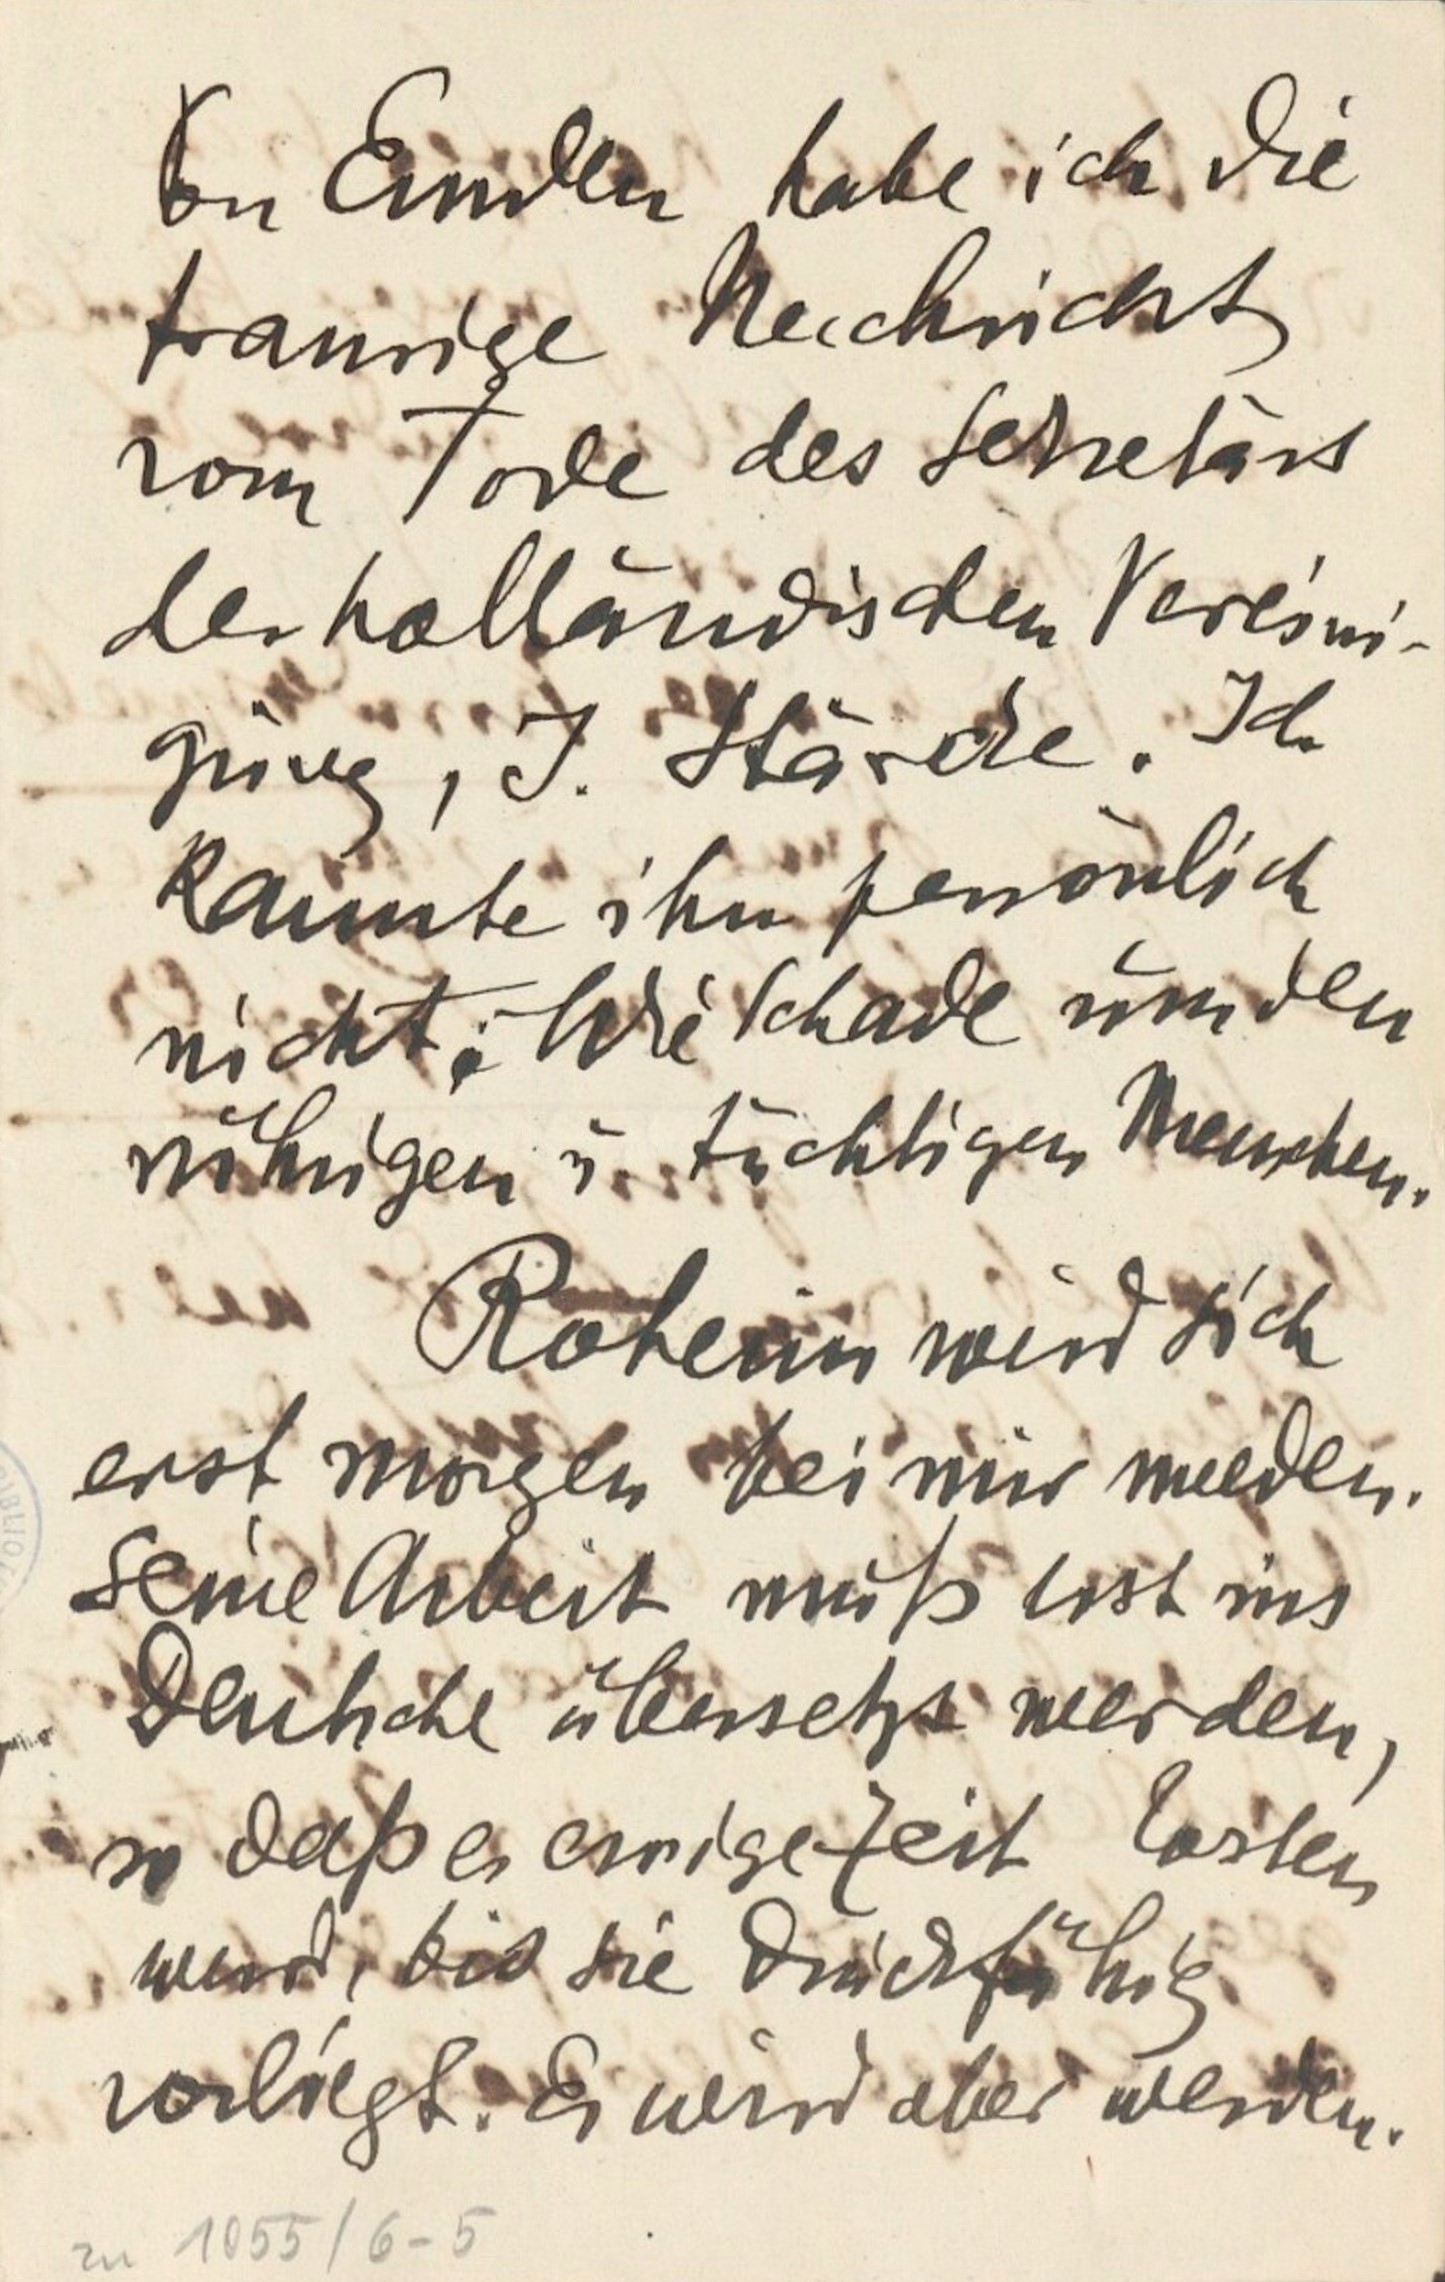 Von Emden habe ich die
traurige Nachricht
vom Tode des Sekretärs
der holländischen Vereini-
gung, J. Stärcke. Ich
kannte ihn persönlich
nicht; Wie schade um den
rührigen u. tüchtigen Menschen.
Roheim wird sich
erst morgen bei mir melden.
Seine Arbeit muß erst ins
Deutsche übersetzt werden,
so daß es einige Zeit kosten
wird, bis sie druckfähig
vorliegt. Es wird aber werden.
zu 1055/6-5